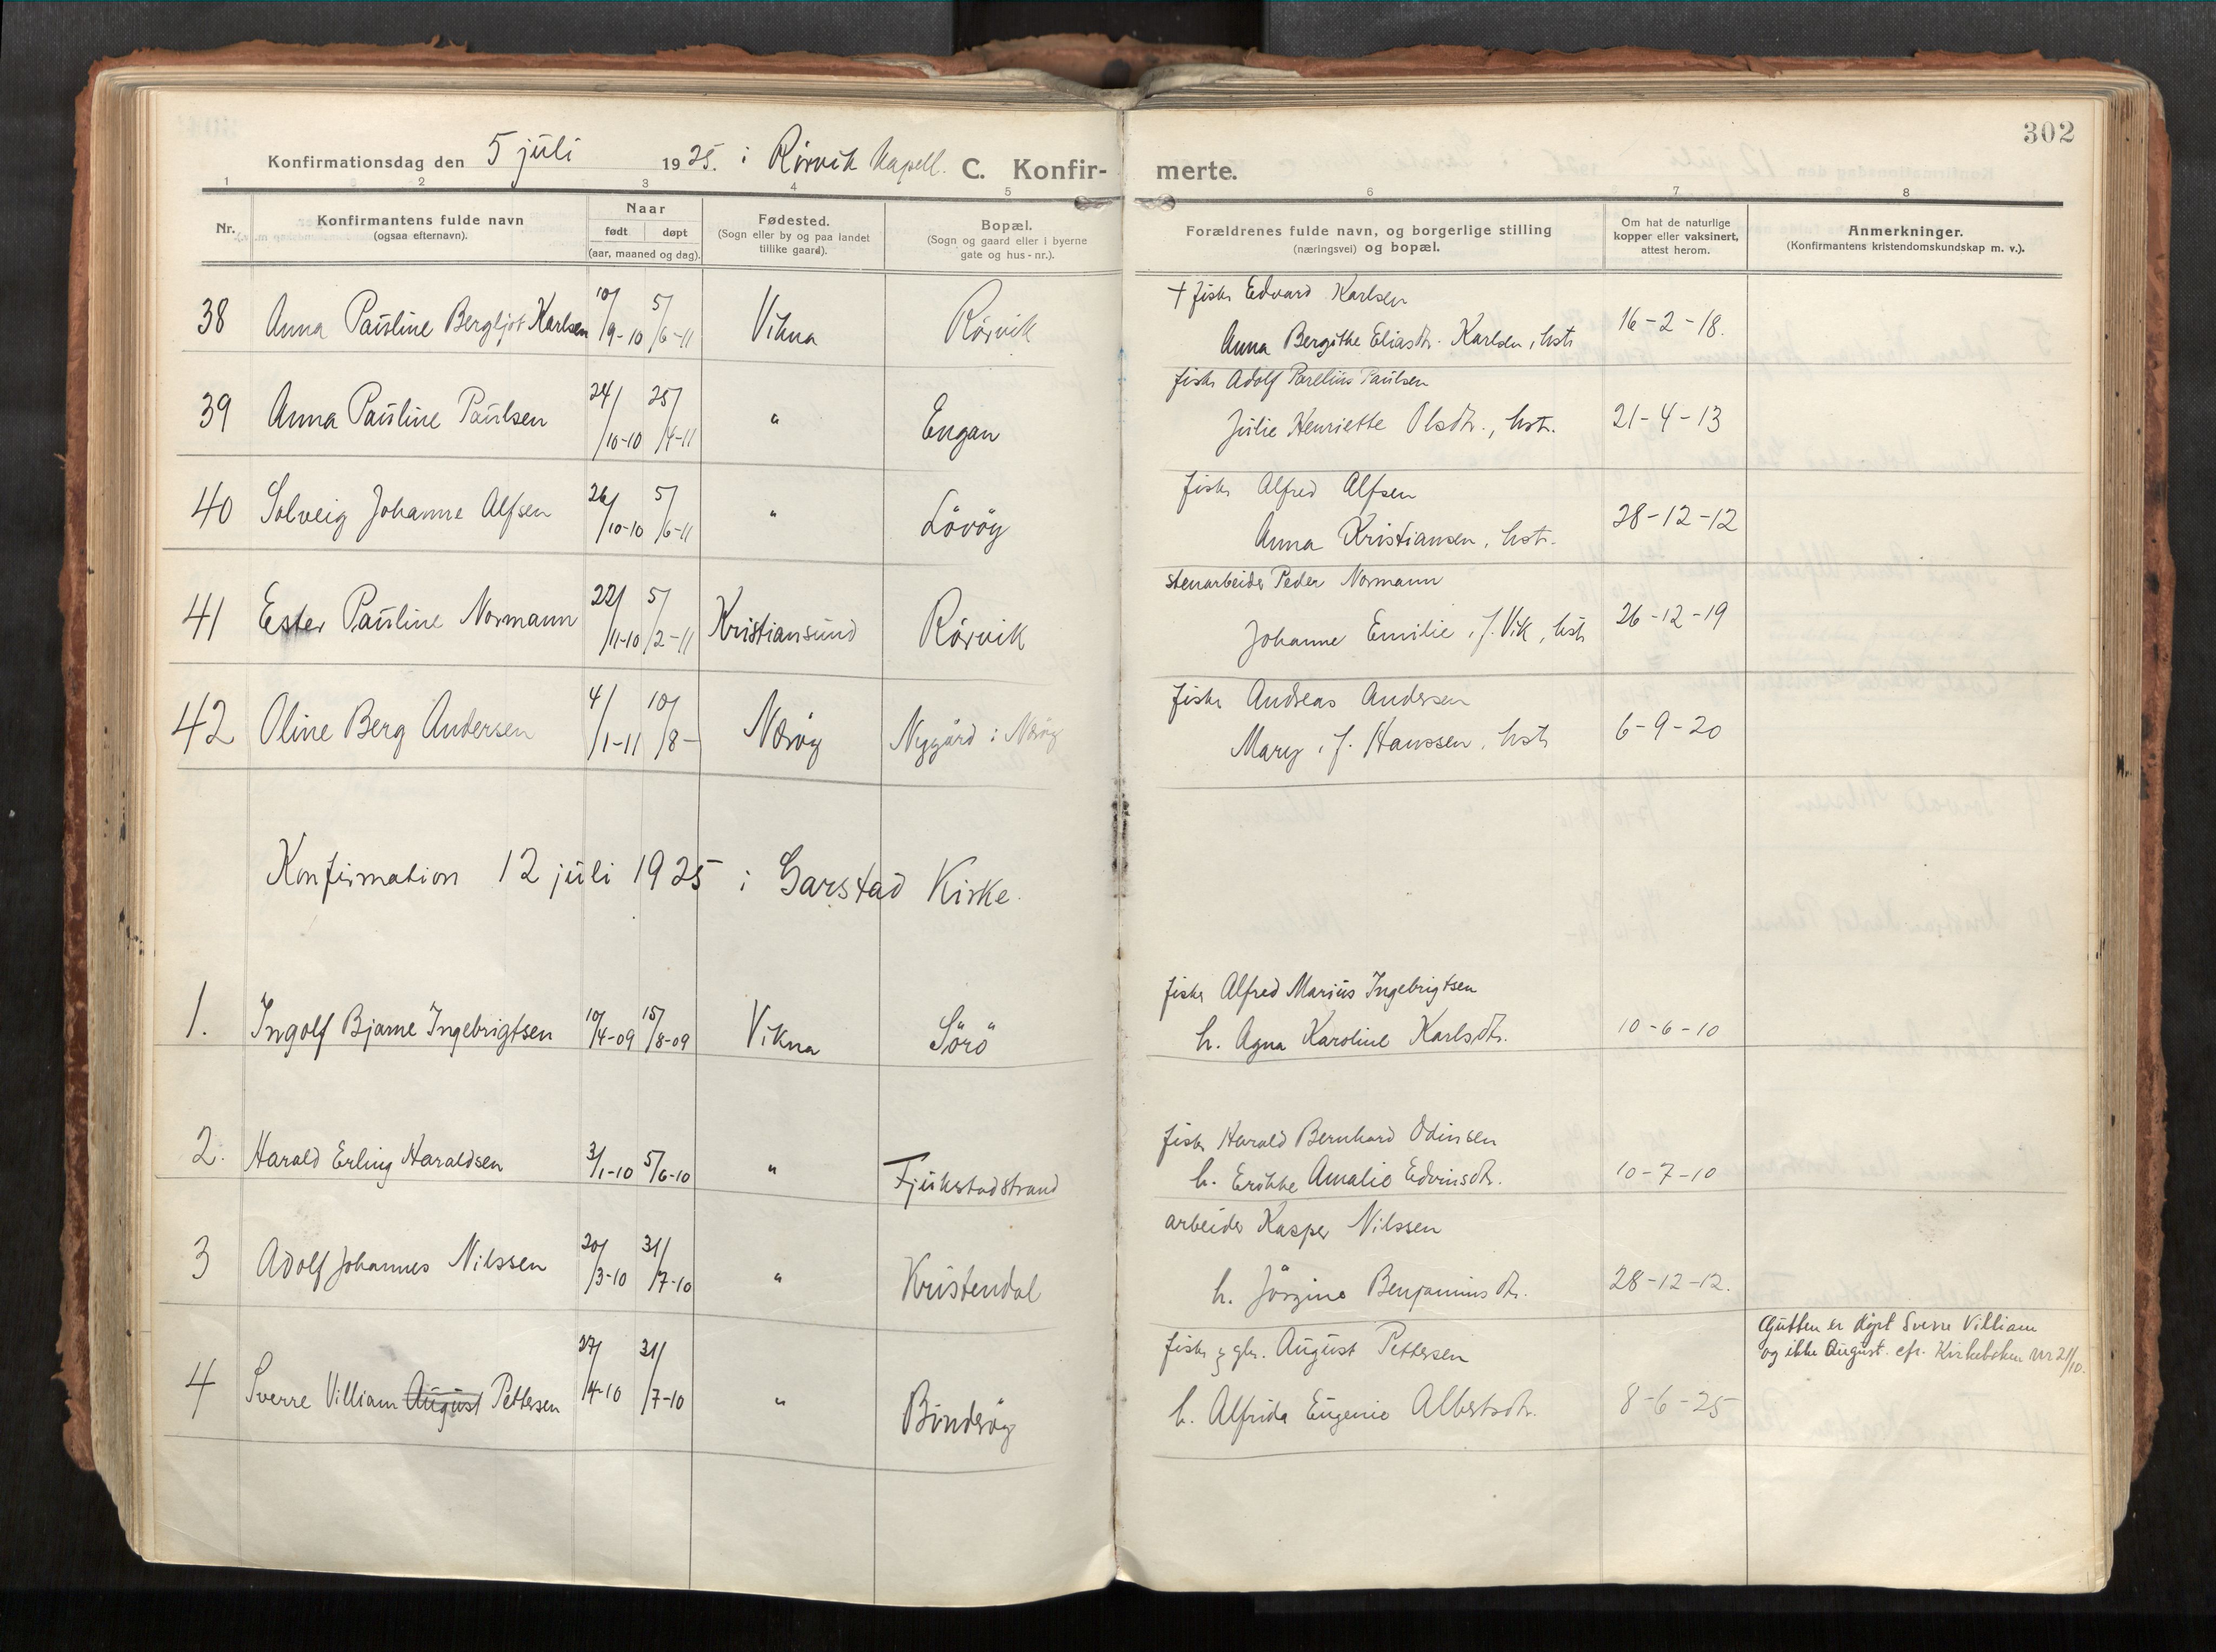 302
Konfirmationsdag den 5 juli 1925. i Rørvik Kapell. C. Konfir-
merte.
1 2 3 4 5 6 7 8
Nr.
Konfirmantens fulde navn
(ogsaa efternavn).
Naar
født døpt
(aar, maaned og dag).
Fødested.
(Sogn eller by og paa landet
tillike gaard).
Bopæl.
(Sogn og gaard eller i byerne
gate og hus-nr.).
Forældrenes fulde navn, og borgerlige stilling
(næringsvei) og bopæl.
Om hat de naturlige
kopper eller vaksinert,
attest herom.
Anmerkninger.
(Konfirmantens kristendomskundskap m. v.).
38 Anna Pauline Bergljot Karlsen 10/9-10 5/6-11 Vikna Rørvik
† fisker Edvard Karlsen
Anna Bergithe Eliasdtr. Karlsen, hstr 16-2-18.
39 Anna Pauline Paulsen 24/10-10 25/4-11 " Engan
fisker Adolf Parelius Paulsen
Julie Henriette Olsdtr., hstr. 21-4-13
40 Solveig Johanne Alfsen 26/10-10 5/6-11 " Lövöy
fisker Alfred Alfsen
Anna Kristiansen, hstr. 28-12-12
41 Ester Pauline Normann 22/11-10 5/2-11 Kristiansund Rörvik
stenarbeider Peder Normann
Johanne Emilie, f. Vik, hstr 26-12-19
42 Oline Berg Andersen 4/1-11 10/8- Nærøy Nygård i Nærøy
fisker Andreas Andersen
Mary, f. Hanssen, hstr 6-9-20
Konfirmation 12 juli 1925 i Garstad Kirke.
1. Ingolf Bjarne Ingebrigtsen 10/4-09 15/8-09 Vikna Sörö
fisker Alfred Marius Ingebrigtsen
h. Agna Karoline Karlsdtr. 10-6-10
2. Harald Erling Haraldsen 3/1-10 5/6-10 " Fjukstadstrand
fisker Harald Bernhard Odinsen
h. Erikke Amalie Edvinsdtr. 10-7-10
3 Adolf Johannes Nilssen 20/3-10 31/7-10 " Kristendal
arbeider Kasper Nilssen
h. Jörgine Benjaminsdtr. 28-12-12.
4 Sverre Villiam August Pettersen 27/4-10 31/7-10 " Binderöy
fisker og gbr. August Pettersen
h. Alfrida Eugenie Albertsdtr. 8-6-25
Gutten er døpt Sverre Villiam
og ikke August. cfr. Kirkeboken nr 21/10.